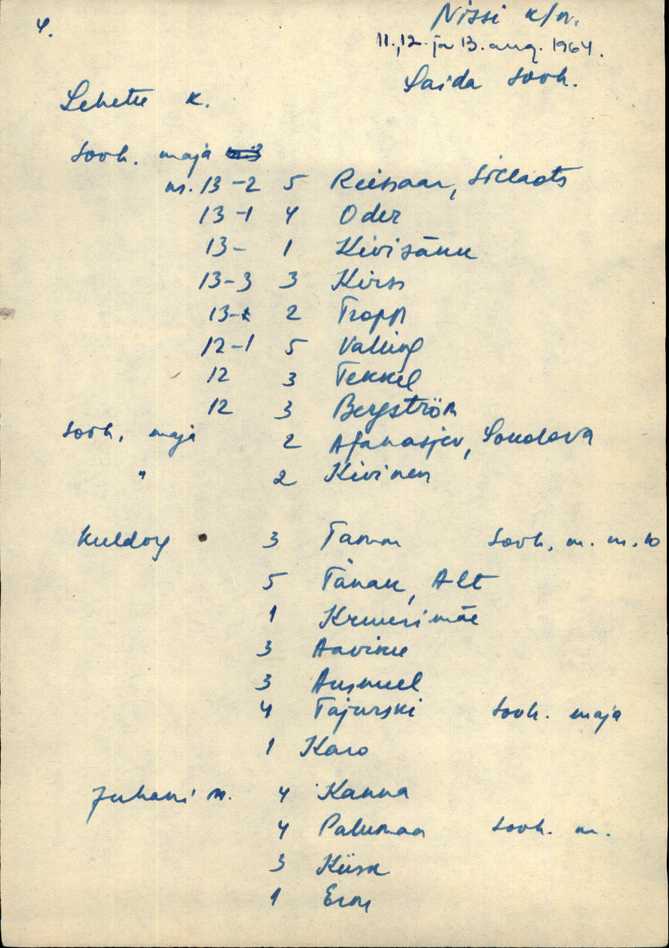 4.
Nissi k/n.
11., 12. ja 13. aug. 1964.
Saida sovh.
Lehetu k.
sovh. maja
nr. 13-2 5 Reissaar, Sillaots
13-1 4 Oder
13- 1 Kivisänk
13-3 3 Kirss
13- 2 Tropp
12-1 5 Valling
12 3 Tekkel
12 3 Bergström
sovh. maja 2 Afanasjev,
" 2 Kivinen
Kuldoy 3 Tamm sovh. m. nr. 10
5 Tänak, Alt
1 Kruusimäe
3 Aaviku
3 Ausmeel
4 Tajurski sovh. maja
1 Karo
Juhani m. 4 Kanna
4 Palumaa sovh. m.
3 Kiisk
1